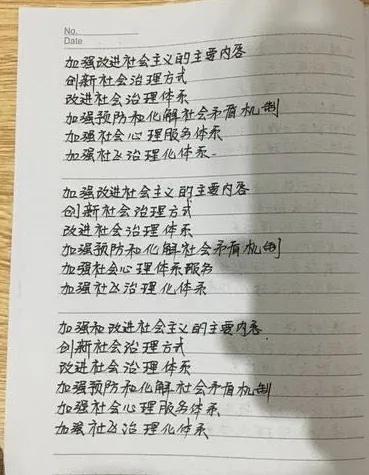 No.
Date
加强改进社会主义的主要内容
创新社会治理方式
改进社会治理体系
加强预防和化解社会矛盾机制
加强社会心理服务体系
加强社区治理化体系
加强改进社会主义的主要内容
创新社会治理方式
改进社会治理体系
加强预防和化解社会矛盾机制
加强社会心理体系服务
加强社区治理化体系
加强和改进社会主义的主要内容
创新社会治理方式
改进社会治理体系
加强预防和化解社会矛盾机制
加强社会心理服务体系
加强社区治理化体系